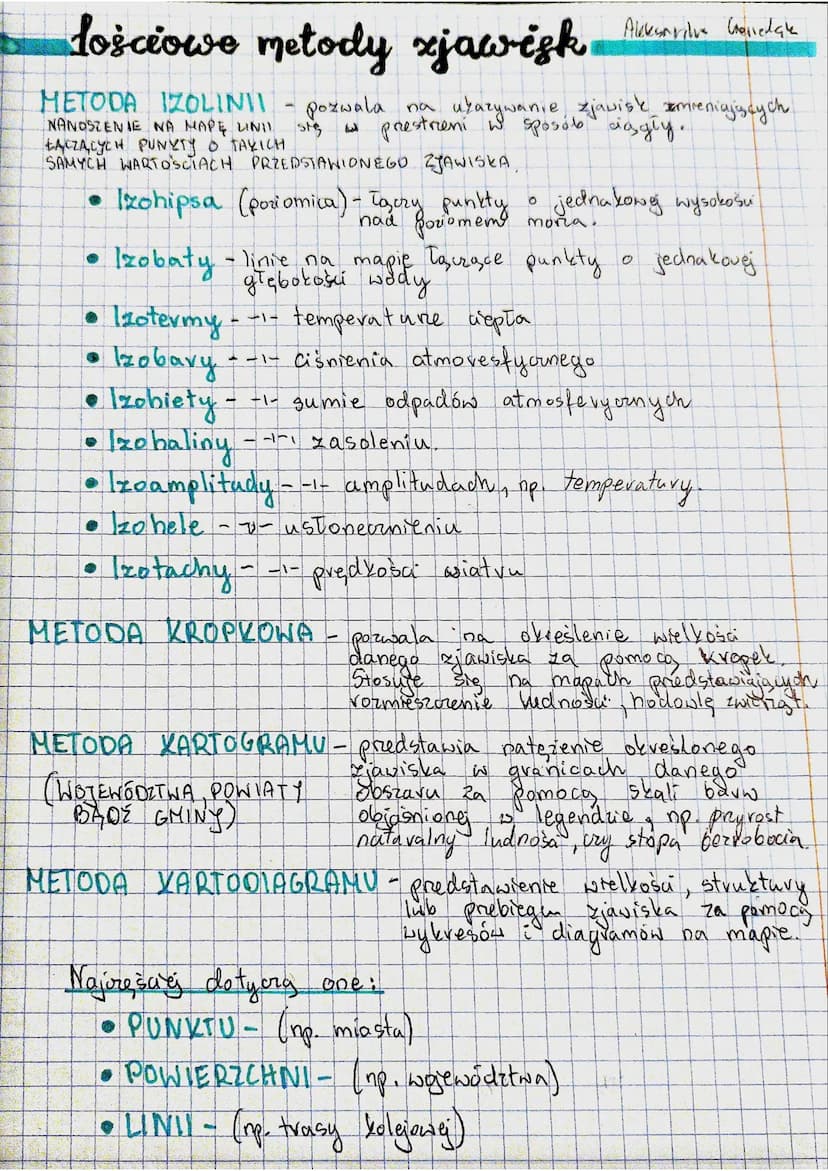 Ilościowe metody zjawisk
Aleksandra
METODA IZOLINII - pozwala na ukazywanie zjawisk zmieniających
NANOSZENIE NA MAPĘ LINII się w prestrzeni w sposób ciągły.
ŁĄCZĄCYCH PUNKTY O TAKICH
SAMYCH WARTOŚCIACH PRZEDSTAWIONEGO ZJAWISKA.
• Izohipsa (poziomica) - łączy punkty o jednakowej wysokości
nad poziomem morza.
• Izobaty - linie na mapie łączące punkty o jednakowej
głębokości wody
• Izotermy - -||- temperaturze ciepła
• Izobary - -||- ciśnienia atmosferycznego
• Izohiety - -||- sumie odpadów atmosferycznych
• Izohaliny - -||- zasoleniu.
• Izoamplitudy - -||- amplitudach, np. temperatury.
• Izohele - -||- usłonecznieniu
• Izotachy - -||- prędkości wiatru
METODA KROPKOWA - pozwala na określenie wielkości
danego zjawiska za pomocą kropek.
Stosuje się na mapach przedstawiających
rozmieszczenie ludności, hodowlę zwierząt.
METODA KARTOGRAMU - przedstawia natężenie określonego
zjawiska w granicach danego
(WOJEWÓDZTWA, POWIATY obszaru za pomocą skali barw
BĄDŹ GMINY) objaśnionej w legendzie, np. przyrost
naturalny ludności, czy stopa bezrobocia.
METODA KARTODIAGRAMU - przedstawienie wielkości, struktury
lub przebiegu zjawiska za pomocą
wykresów i diagramów na mapie.
Najczęściej dotyczą one:
• PUNKTU - (np. miasta)
• POWIERZCHNI - (np. wojewódstwa)
• LINII - (np. trasy kolejowej)